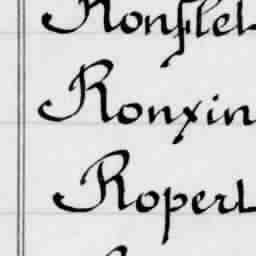 Ronflet
Ronxin
Ropert